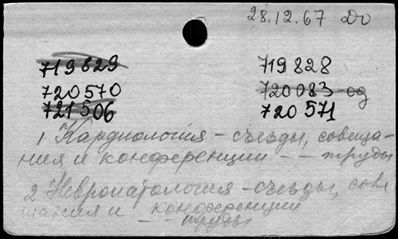 28.12.67 До
719829 719828
720570 720083-од
721506 720571
1 Кардиология - съезды, совеща-
ния и конференции - - труды
2 Невропатология - съезды, сове
щания и конференции
- - труды